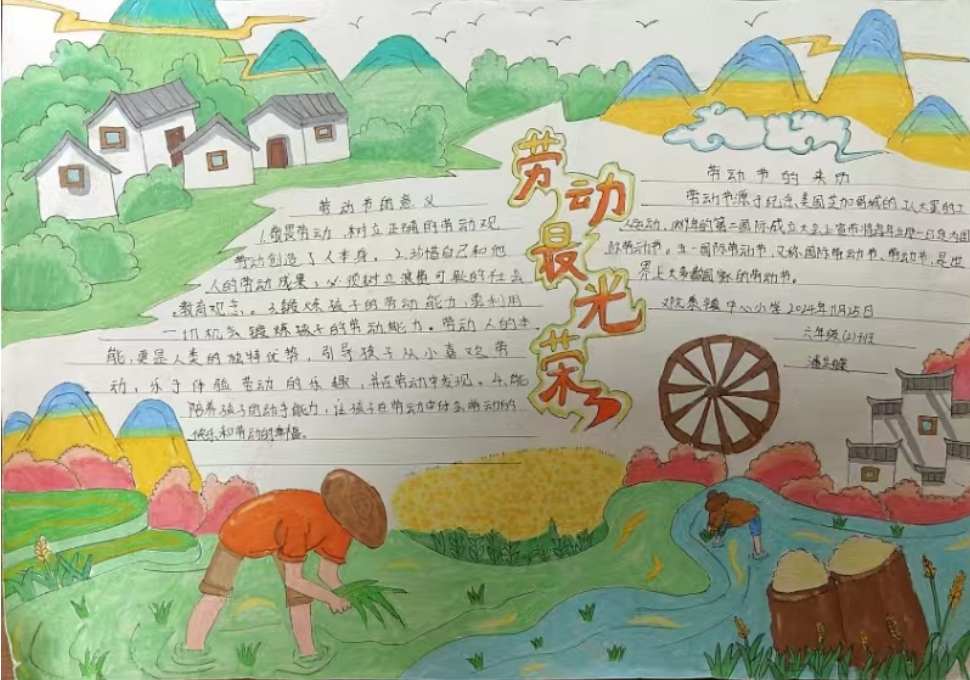 劳动最光荣
劳动节的意义
1.敬畏劳动,树立正确的劳动观
劳动创造了人本身。2.珍惜自己和他
人的劳动成果,必须树立浪费可耻的社会
教育观念。3.锻炼孩子的劳动能力,要利用
一切机会锻炼孩子的劳动能力。劳动人的本
能,更是人类的独特优势,引导孩子从小喜欢劳
动,乐于体验劳动的乐趣,并在劳动中发现。4.能
培养孩子的动手能力,让孩子在劳动中体会劳动的
快乐和劳动的幸福。
劳动节的来历
劳动节源于纪念美国芝加哥城的工人大罢的工
人运动,1889年的第二国际成立大会上宣布将每年五月一日定为国
际劳动节。五一国际劳动节,又称国际劳动节、劳动节,是世
界上大多数国家的劳动节。
镇中心小学2024年11月25日
六年级(2)班